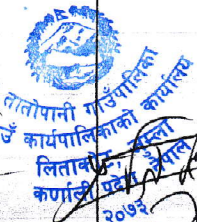 तातोपानी गाउँपालिका
गाउँ कार्यपालिकाको कार्यालय
जुम्ला
कर्णाली प्रदेश, नेपाल
२०७३